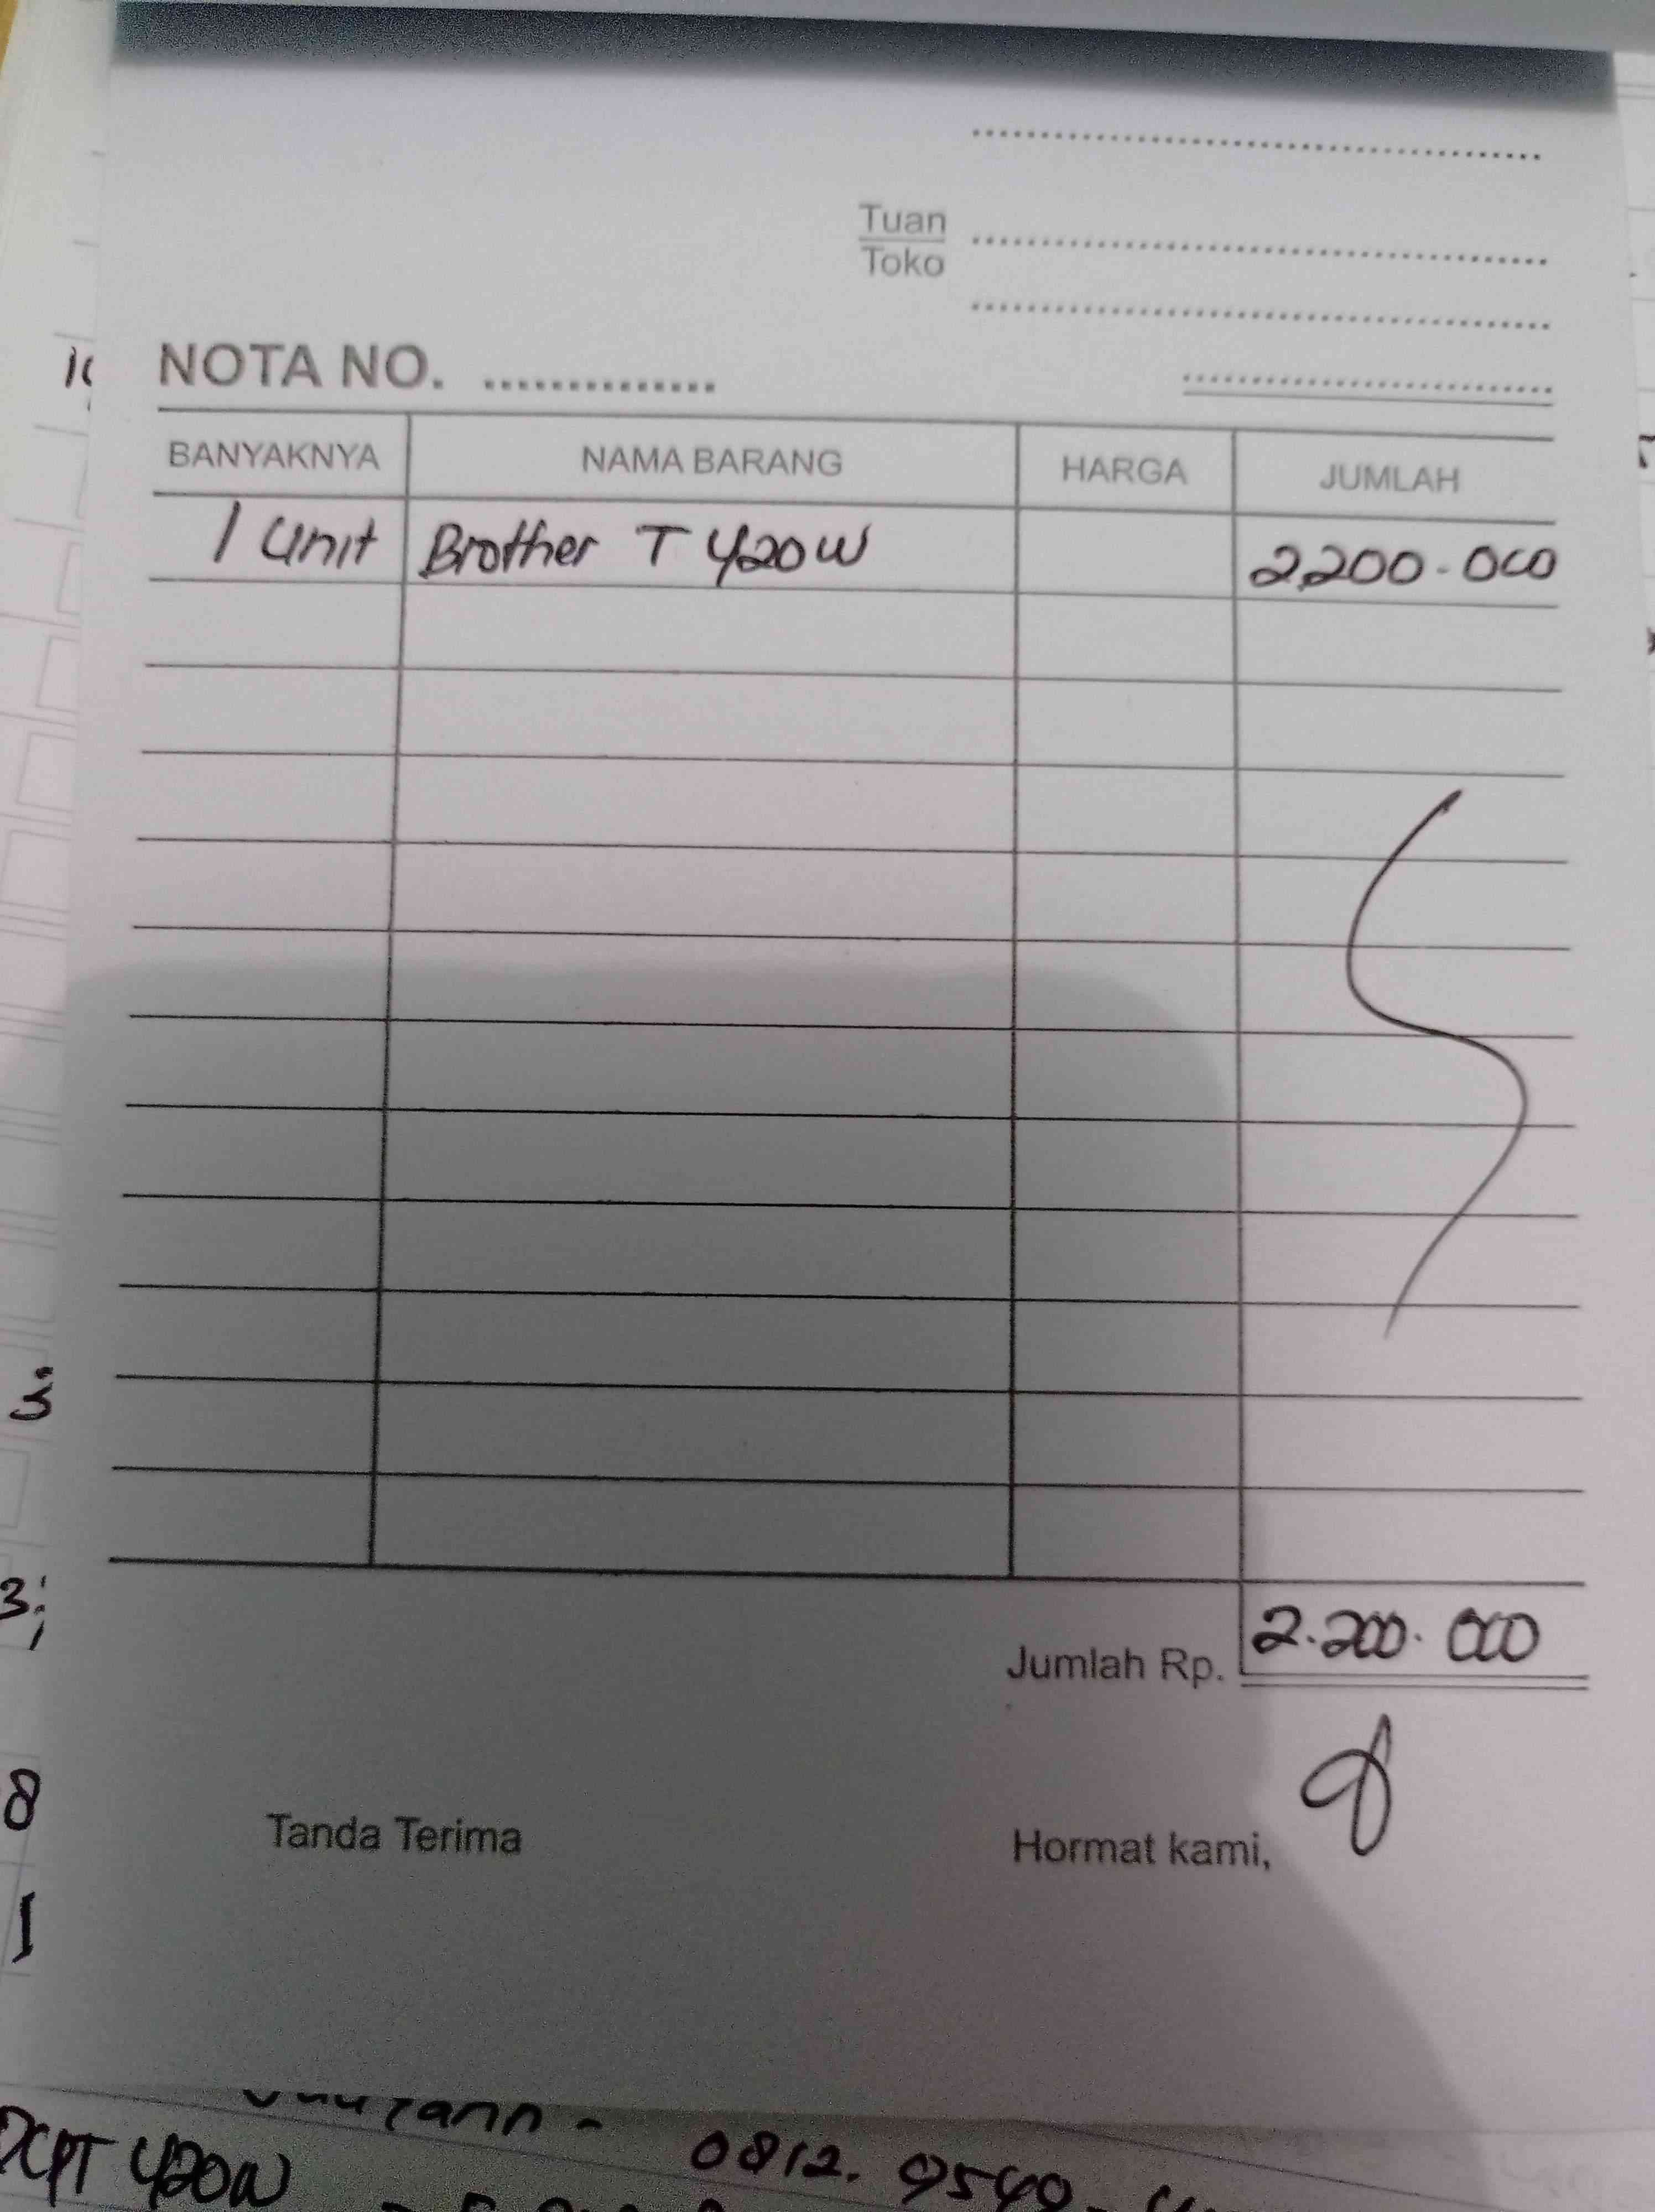 Tuan
Toko
NOTA NO.
BANYAKNYA NAMA BARANG HARGA JUMLAH
1 Unit Brother T 420W 2.200.000
Jumlah Rp. 2.200.000
Tanda Terima Hormat kami,
0812. 9549
DCPT 420W